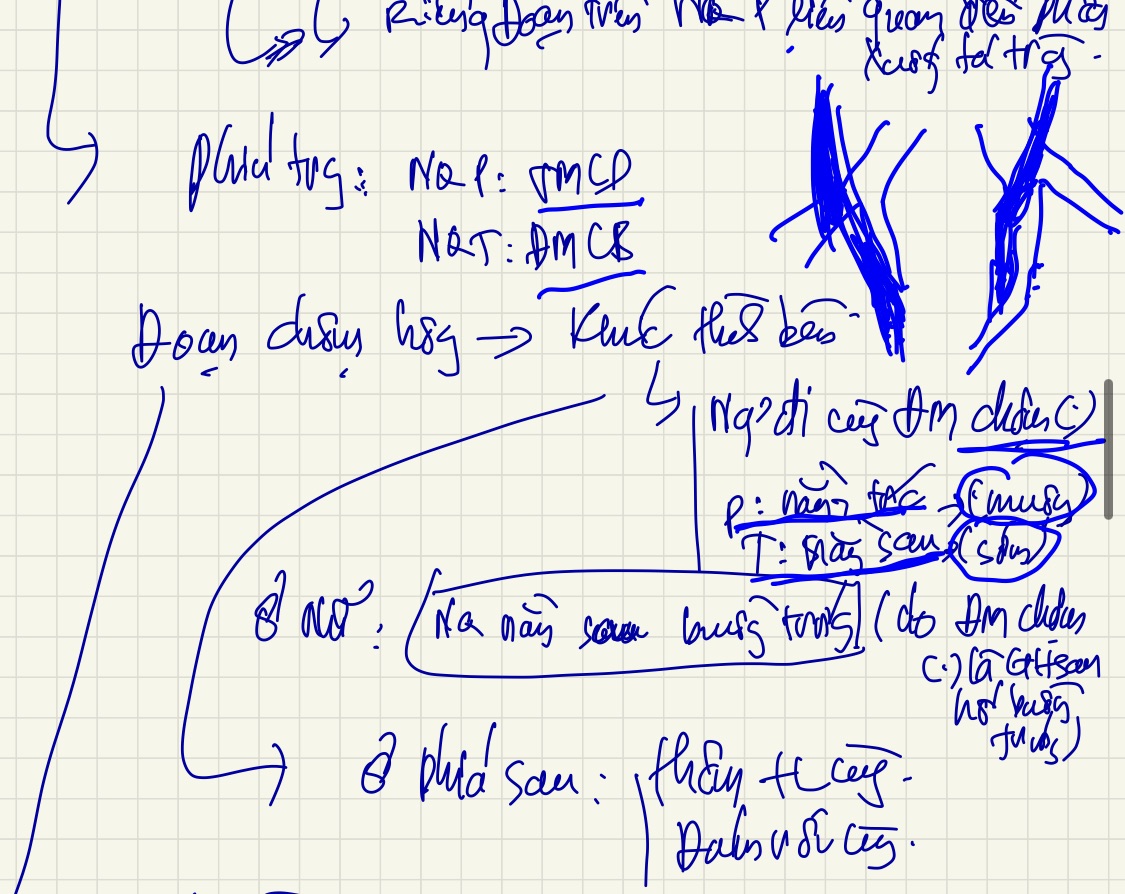 Riêng Đoạn trên NQ P liên quan đến phía
xuống tá trg.
phía trg: NQ P: ĐMCD
NQT: ĐMCB
Đoạn chậu hôg → Khuất thắt bên
Ng² đi cùg ĐM chậu (:)
P: nằm trc (muộn)
T: nằm sau (sớm)
Ở Nữ: NQ nằm sau buồng trứng (do ĐM chậu
(:) là GH sau
hố buồng
trứng)
Ở phía sau: thân TL cùg.
Đám rối cùg.